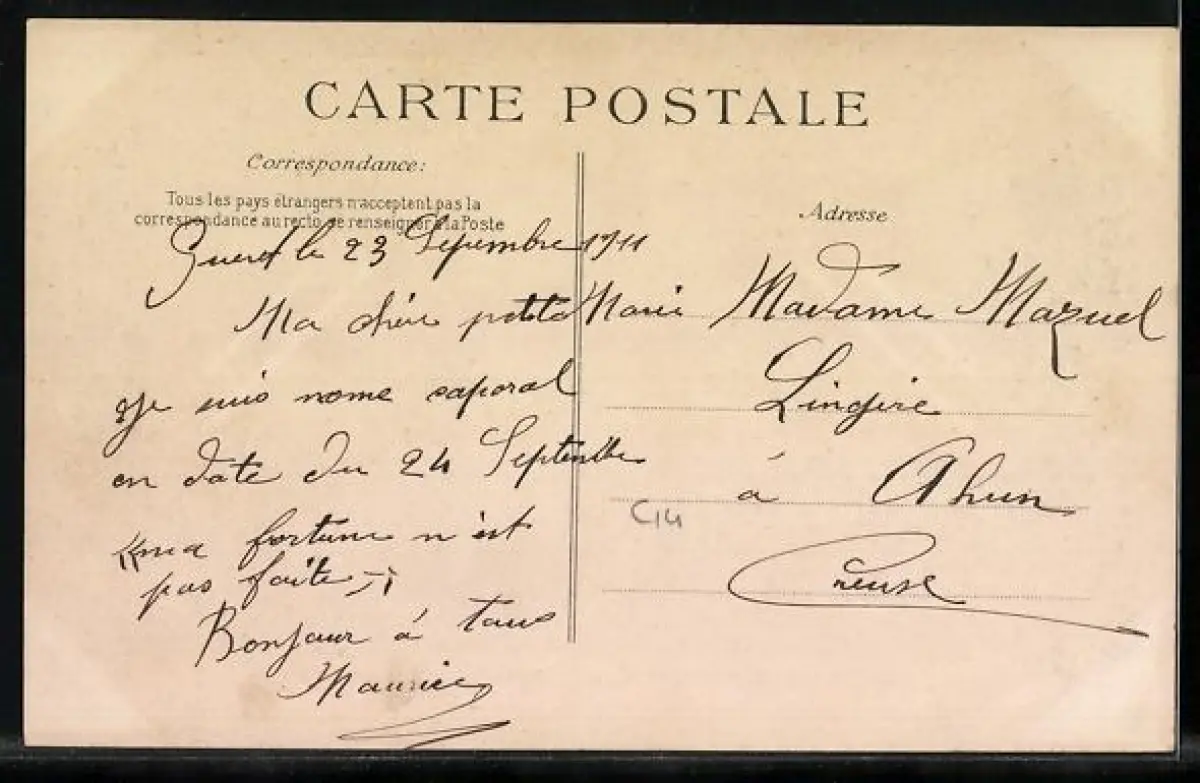 CARTE POSTALE
Correspondance:
Tous les pays étrangers n'acceptent pas la
correspondance au recto se renseigner à la Poste
Gueret le 23 Sepembre 1911
Ma chère petite Marie
Je suis nome caporal
en date du 24 Septembre
ma fortune n'est
pas faite
Bonjour à tous
Maurice
Adresse
Madame Mazuel
Lingère
à Ahun
Creuse
C14